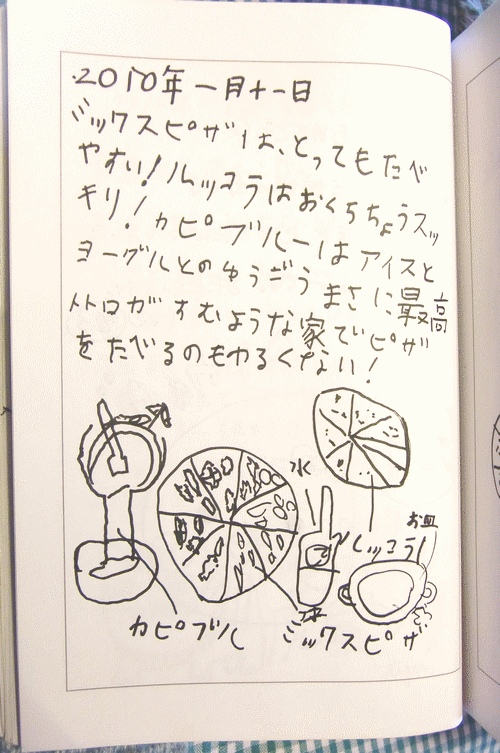 2010年一月十一日
ミックスピザは、とってもたべ
やすい!ルッコラはおくちちょうスッ
キリ!カピブルーはアイスと
ヨーグルとのゆうごう まさに最高
トトロガすむような家でピザ
をたべるのもわるくない!
水
お皿
ルッコラ
カピブル
ミックスピザ